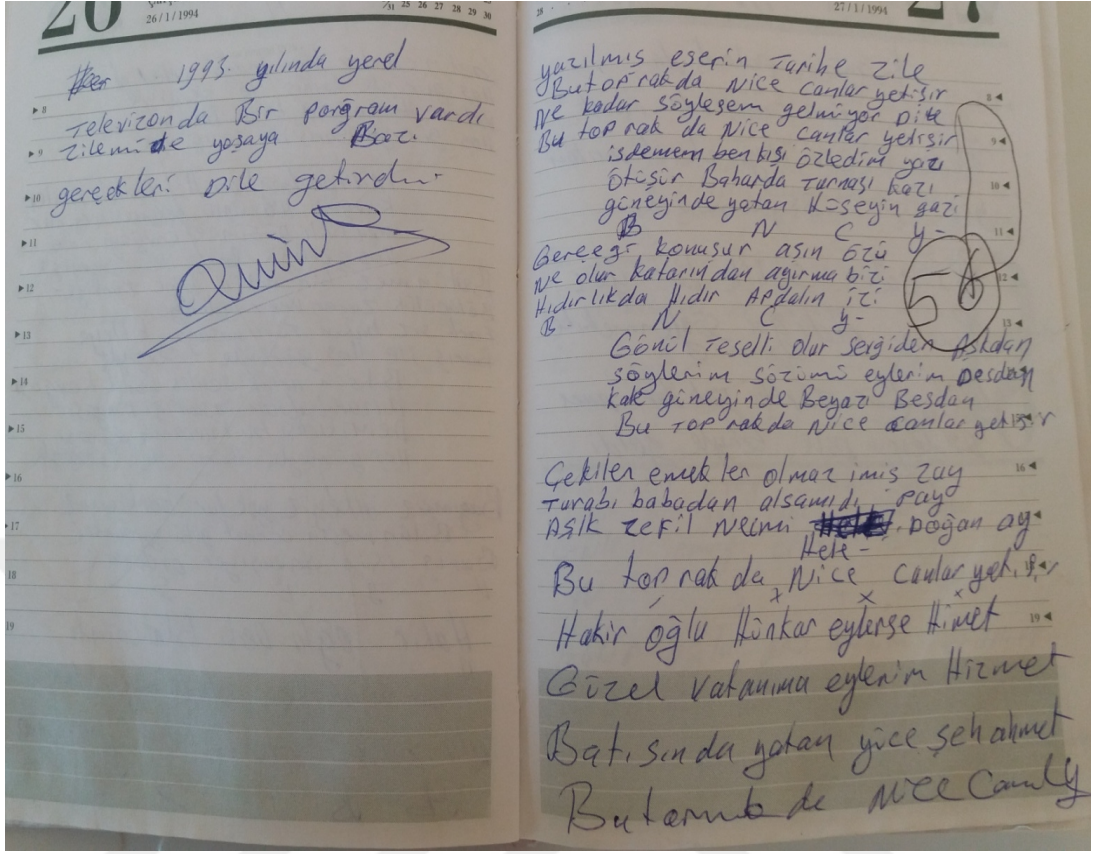 26
26/1/1994
31 25 26 27 28 29 30
1993. yılında yerel
Televizonda Bir porğram vardı
zilemizde yaşaya Bazı
gerçekleri Dile getirdim
8
9
10
11
12
13
14
15
16
17
18
19
27/1/1994
27
28
yazılmış eserin Tarihe zile
Bu toprakda Nice canlar yetişir
Ne kadar söylesem gelmiyor Dile
Bu toprak da Nice canlar yetişir
isdemem ben kışı özledim yazı
ötüşür Baharda Turnası kazı
güneyinde yatan Hüseyin gazi
B N C y-
Gerçeği konuşur aşın özü
Ne olur katarından ayırma bizi
Hıdırlıkda Hıdır Apdalın izi
B. N C y-
56
Gönül Teselli olur sergiden Aşkdan
söylerim sözümü eylerim Desdan
kale güneyinde Beyazı Besdan
Bu toprakda Nice canlar yetişir
Çekilen emekler olmaz imiş zay
Turabı babadan alsamıdı pay
Aşık zefil Necmi Doğan ay
Hele -
Bu toprak da Nice canlar yetişir
Hakir oğlu Hünkar eylerse Himet
Güzel vatanıma eylerim Hizmet
Batısında yatan yüce şeh ahmet
Nice